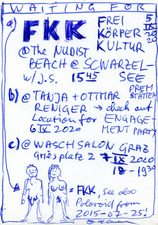 WAITING FOR
a) FKK FREI KÖRPER KULTUR
@ THE NUDIST
BEACH @ SCHWARZEL-
W/J.S. 15 45 SEE
b) @ TANJA + OTTMAR
RENIGER → check out
Location for ENGAGE
6 IX 2020 MENT PARTY
c) @ WASCHSALON GRAZ
Griesplatz 2 7 IX 2020
18 - 1930
= FKK see also
Polaroid from
2015-07-25!